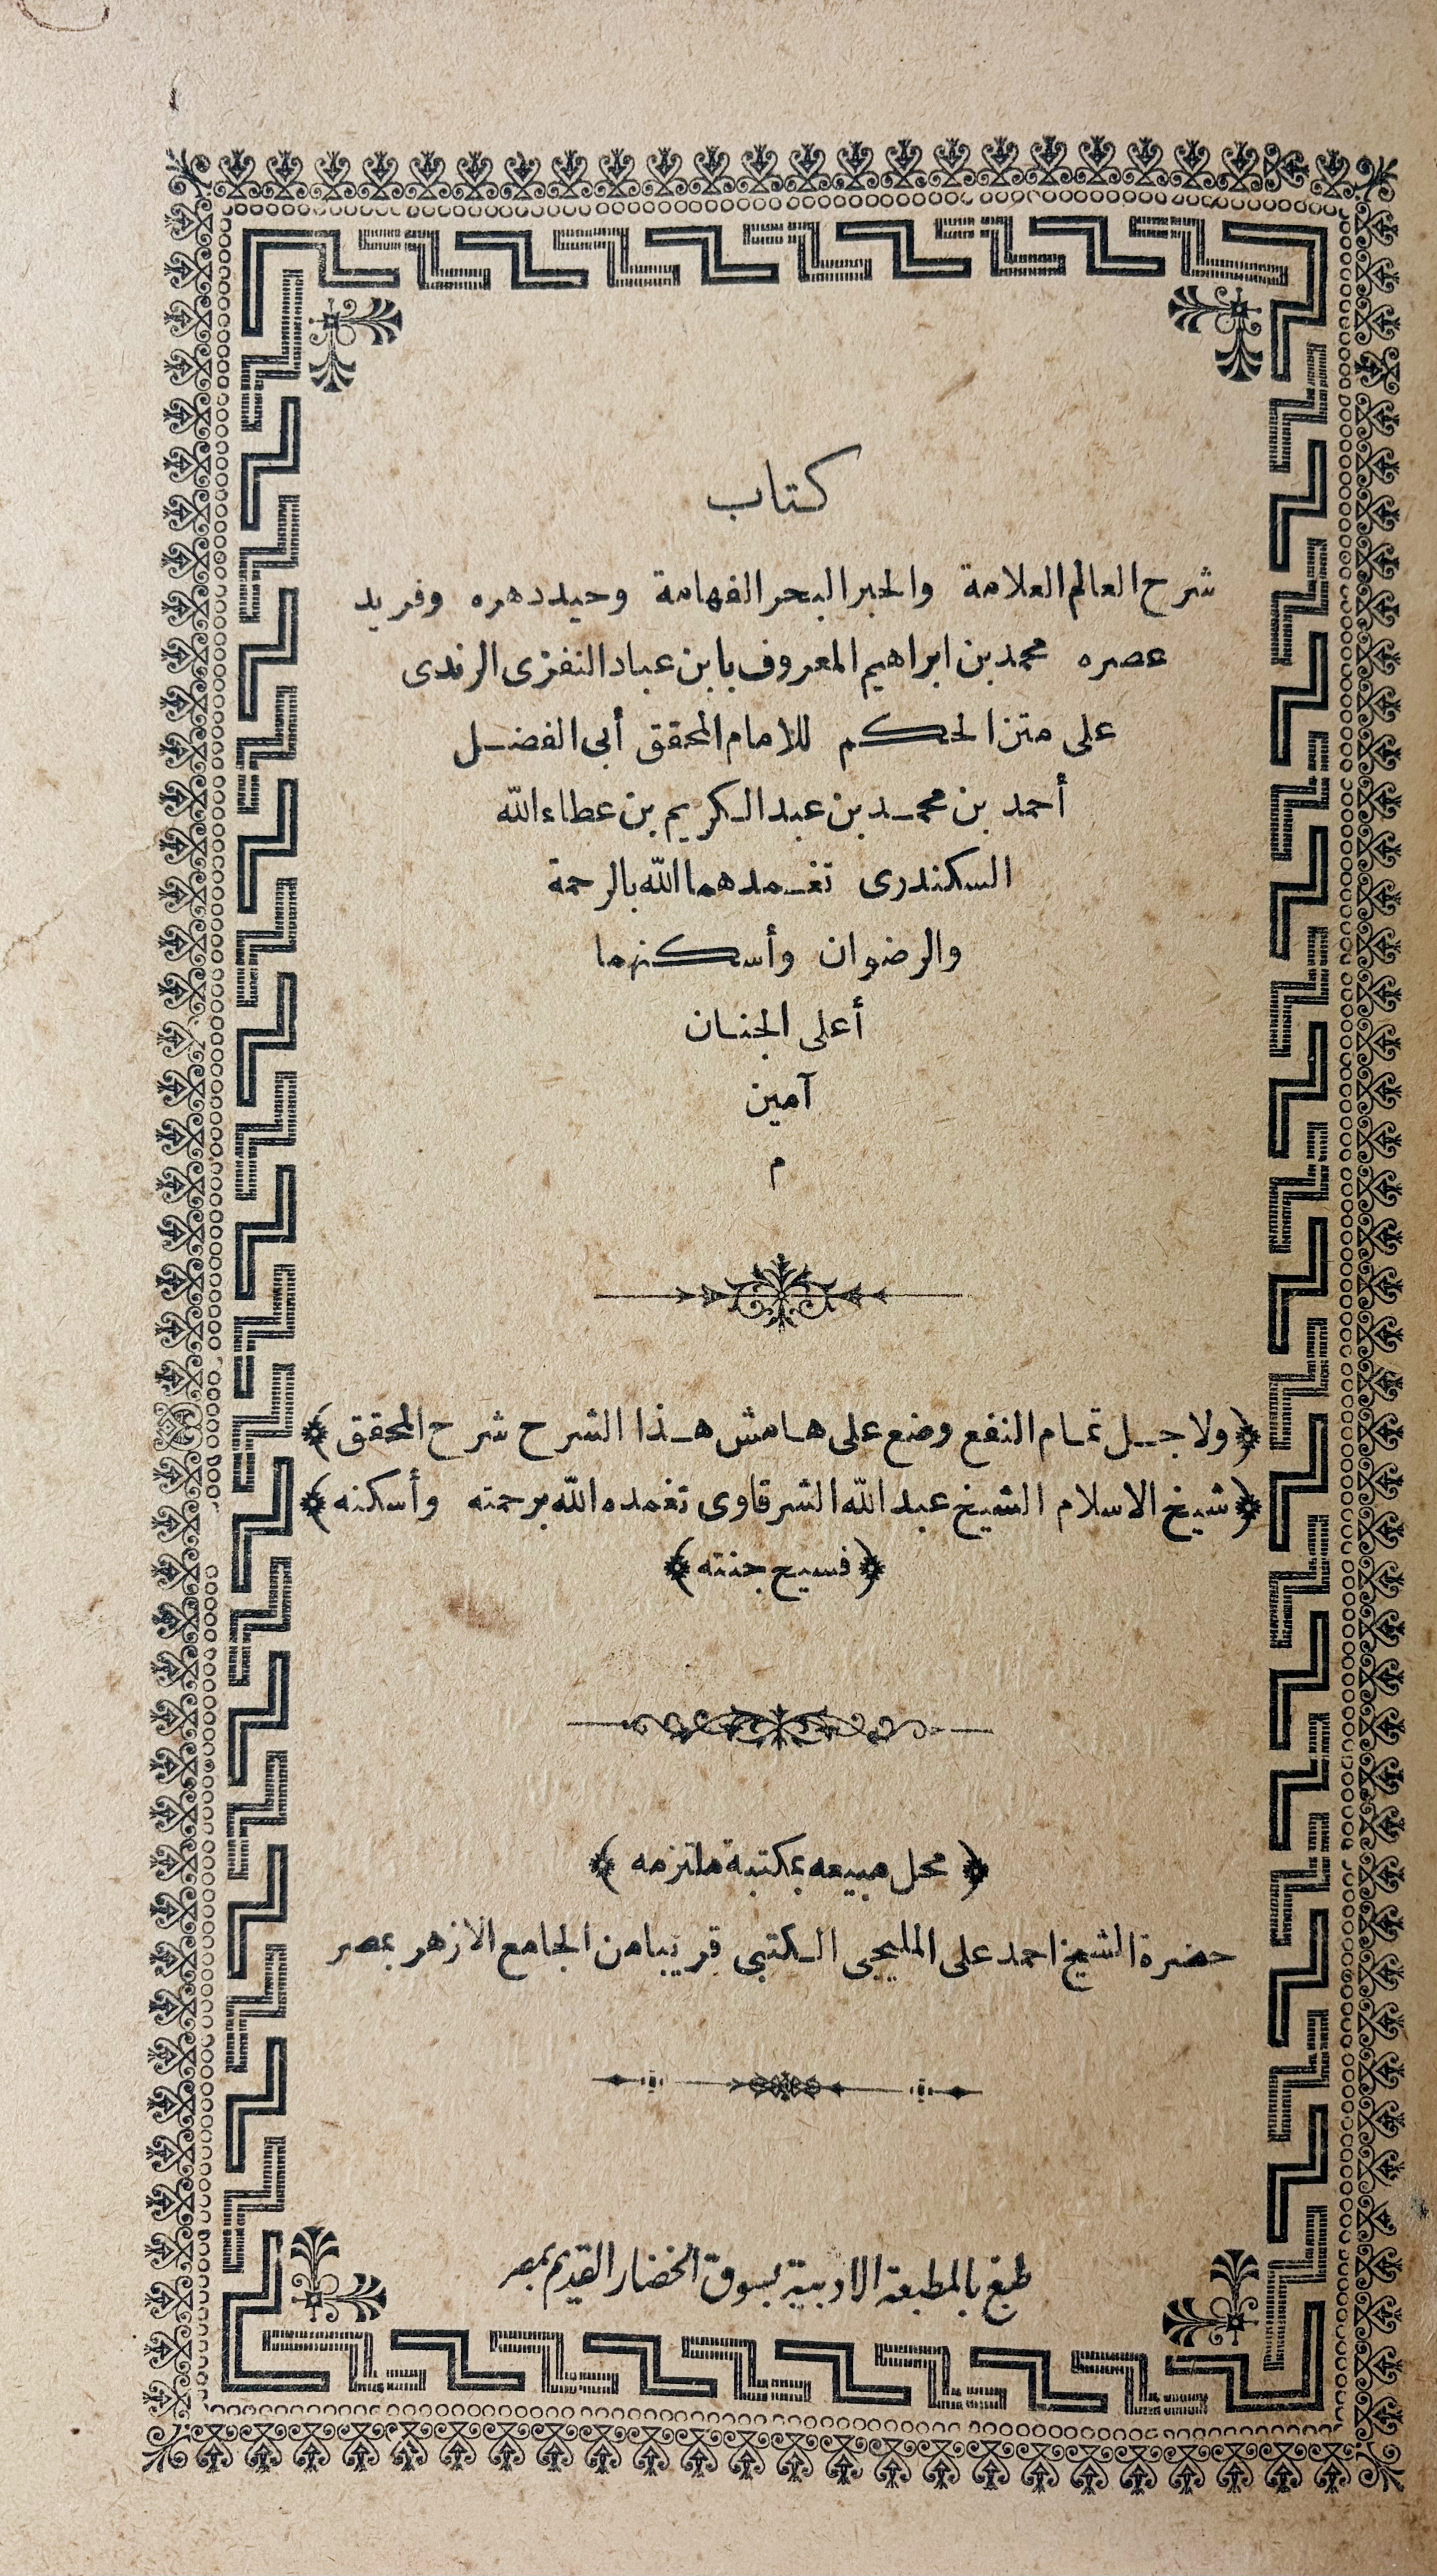 كتاب
شرح العالم العلامة والحبر البحر الفهامة وحيد دهره وفريد
عصره محمد بن ابراهيم المعروف بابن عباد النفزى الرندى
على متن الحكم للامام المحقق أبى الفضل
أحمد بن محمد بن عبد الكريم بن عطاء الله
السكندرى تغمدهما الله بالرحمة
والرضوان وأسكنهما
أعلى الجنان
آمين
م
﴿ولاجل تمام النفع وضع على هامش هذا الشرح شرح المحقق﴾
﴿شيخ الاسلام الشيخ عبد الله الشرقاوى تغمده الله برحمته وأسكنه﴾
﴿فسيح جنته﴾
﴿محل مبيعه بمكتبة ملتزمه﴾
حضرة الشيخ احمد على المليجى الكتبى قريبا من الجامع الازهر بمصر
طبع بالمطبعة الادبية بسوق الخضار القديم بمصر